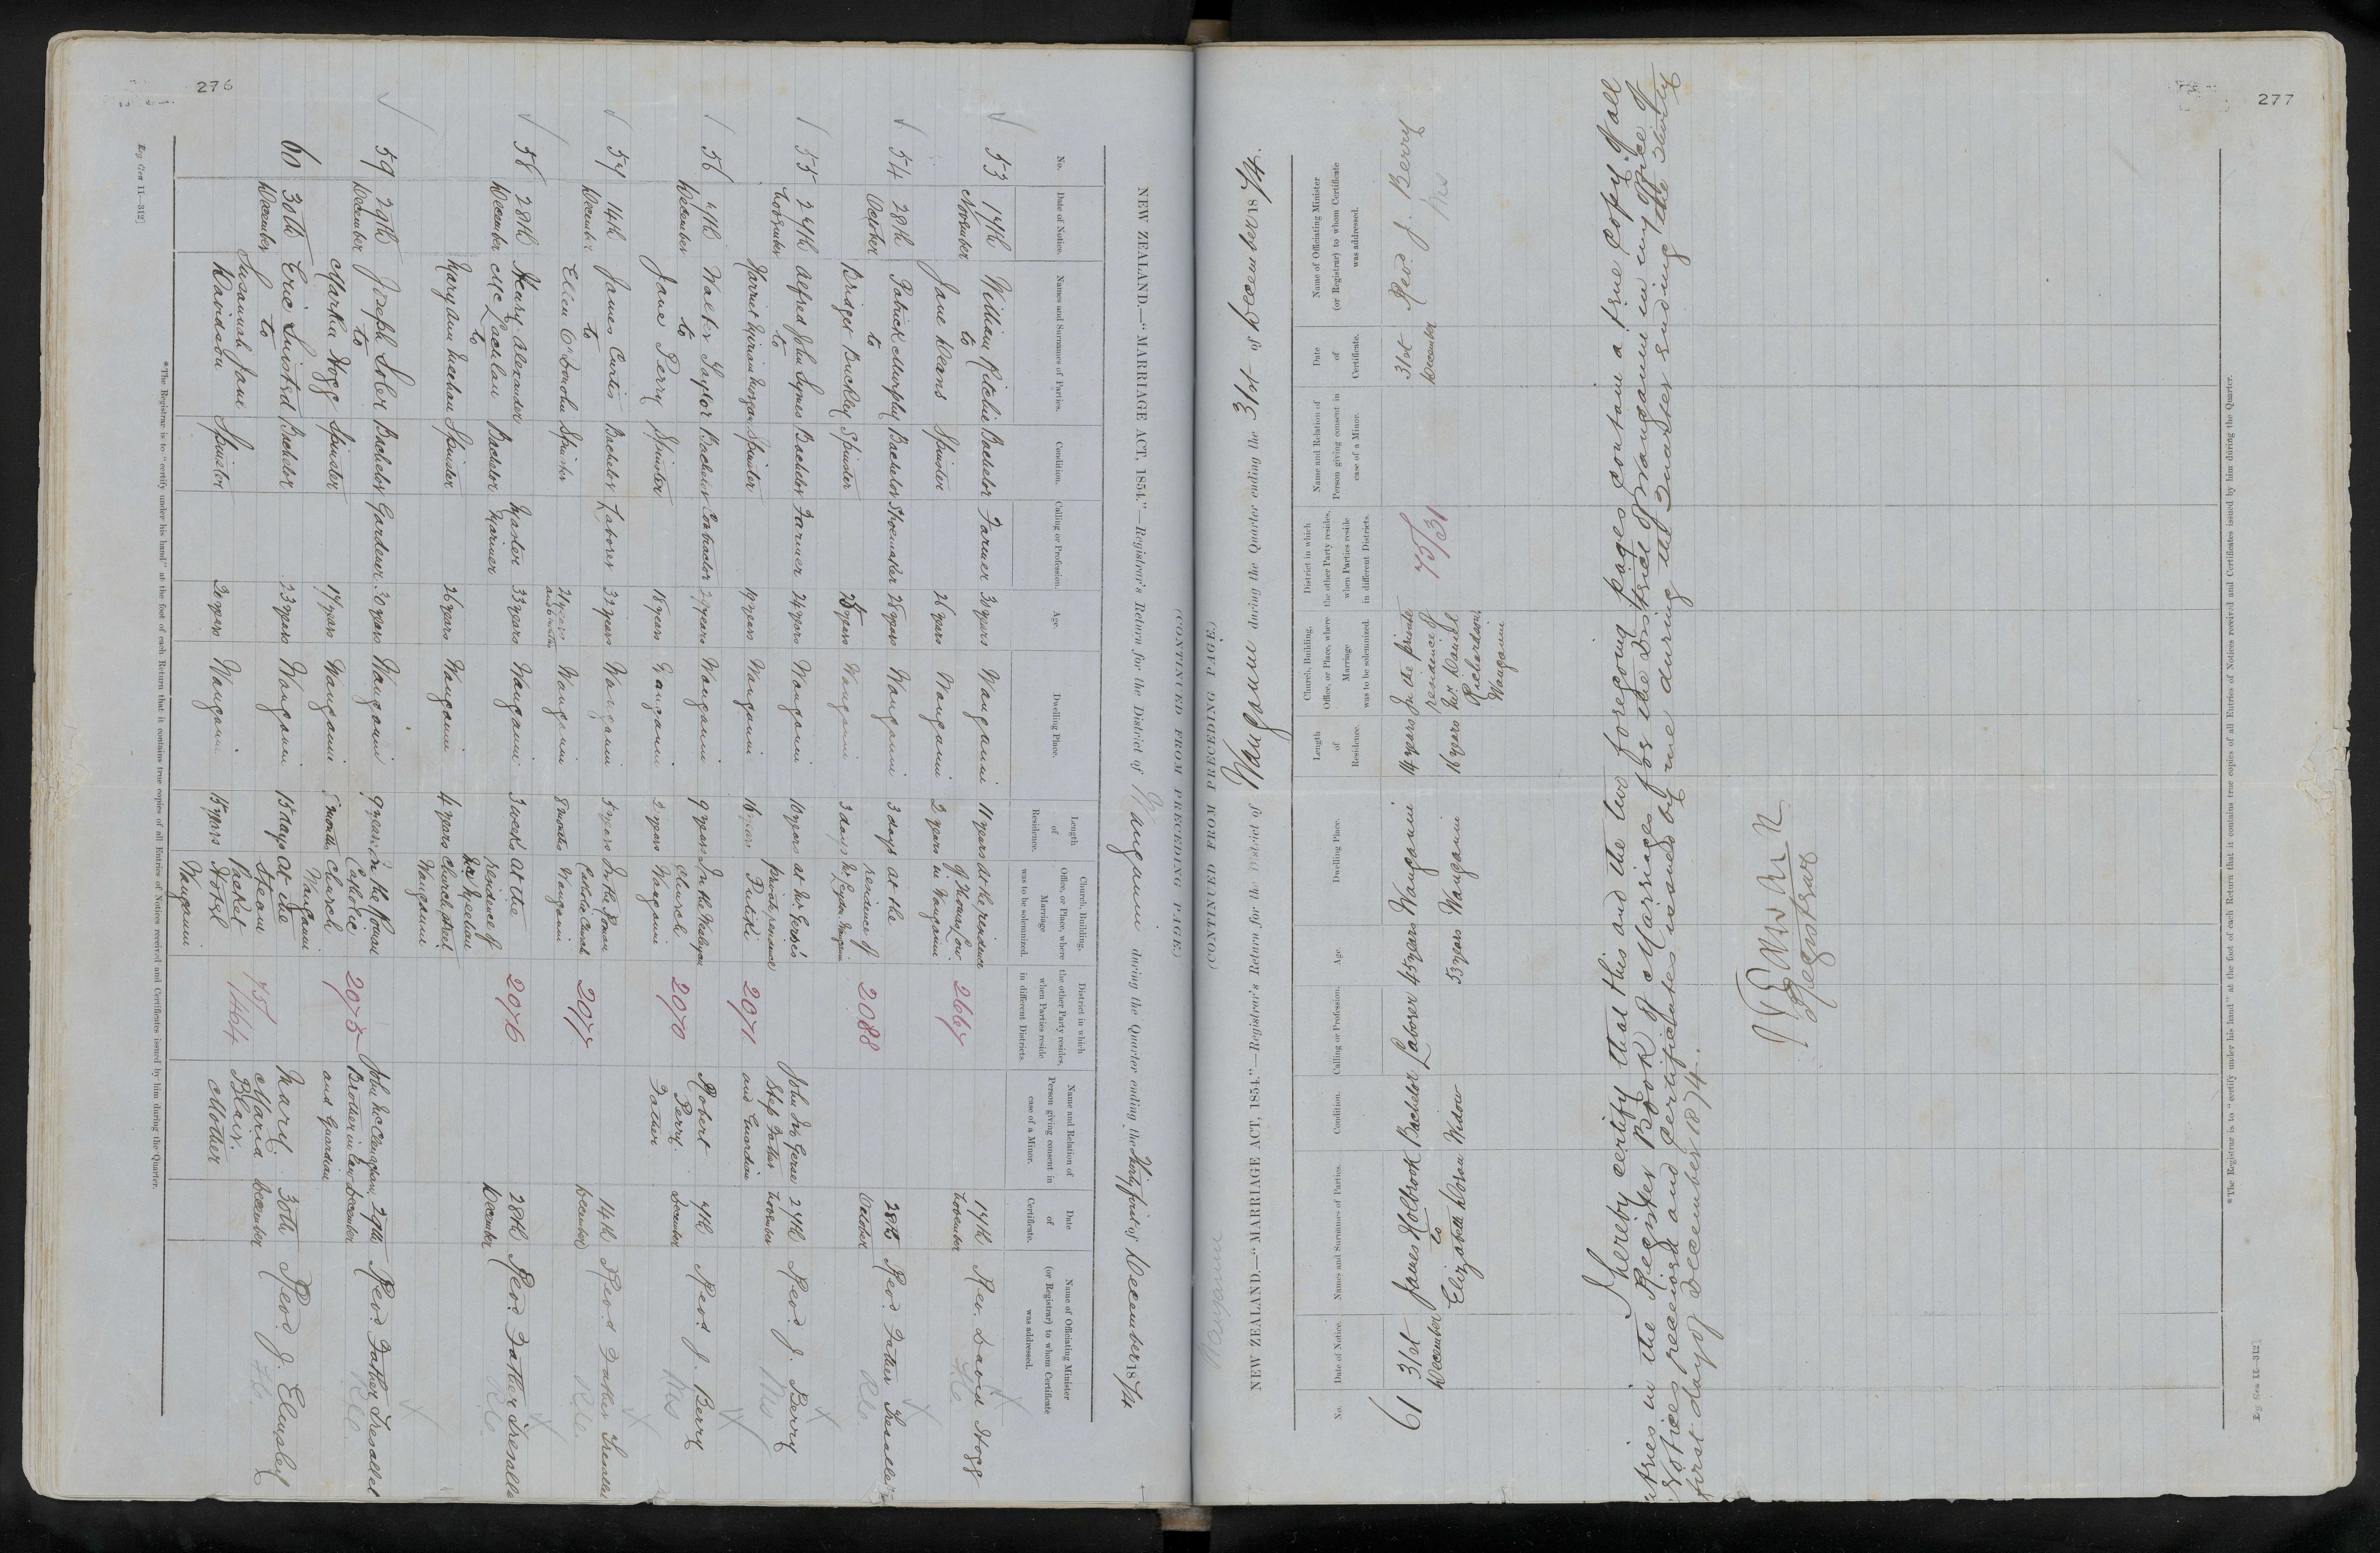 276
(CONTINUED FROM PRECEDING PAGE.)
NEW ZEALAND.—"MARRIAGE ACT, 1854."—Registrar's Return for the District of Wanganui during the Quarter ending the Thirty first of December 1874
No.
Date of Notice.
Names and Surnames of Parties.
Condition.
Calling or Profession.
Age.
Dwelling Place.
Length of Residence.
Church, Building, Office, or Place, where Marriage was to be solemnized.
District in which the other Party resides, when Parties reside in different Districts.
Name and Relation of Person giving consent in case of a Minor.
Date of Certificate.
Name of Officiating Minister (or Registrar) to whom Certificate was addressed.
53 17th November William Ritchie Bachelor Farmer 30 years Wanganui 11 years At the residence 2667 17th November Rev. David Hogg
to
Jane Deans Spinster 26 years Wanganui 2 years in Wanganui
54 28th October Patrick Murphy Bachelor Shoemaker 28 years Wanganui 3 days at the residence of 2088 28th October Revd. Father
to
Bridget Buckley Spinster 25 years Wanganui 3 days
55 27th November Alfred John Symes Bachelor Farmer 24 years Wanganui 10 years at Mr Gerse's private residence Putiki 2071 John Gerse Step Father and Guardian 27th November Revd. J. Berry
to
Harriet Spinster 19 years Wanganui 16 years
56 7th December Walter Taylor Bachelor Contractor 29 years Wanganui 9 years In the Wesleyan Church Wanganui 2070 Robert Perry Father 7th December Revd. J. Berry
to
Jane Perry Spinster 18 years Wanganui 2 years
57 14th December James Curtis Bachelor Laborer 33 years Wanganui 5 years In the Roman Catholic Church Wanganui 2077 14th December Revd Father
to
Ellen Spinster 21 years Wanganui 8 months
58 28th December Henry Alexander McLachlan Bachelor Master Mariner 33 years Wanganui 3 weeks At the residence of Mr Meehan Church Street Wanganui 2076 28th December Revd. Father
to
Mary Ann Meehan Spinster 26 years Wanganui 4 years
59 29th December Joseph Bachelor Gardener 30 years Wanganui 9 years In the Roman Catholic Church Wanganui 2075 Brother in Law and Guardian 29th December Revd. Father
to
Martha Hogg Spinster 17 years Wanganui months
60 30th December Eric Bachelor 23 years Wanganui 15 days At the Steam Packet Hotel Wanganui 75/1464 Mary Maria Blair Mother 30th December Revd. J. Elmslie
to
Susannah Jane Spinster 20 years Wanganui 15 years
*The Registrar is to "certify under his hand" at the foot of each Return that it contains true copies of all Entries of Notices received and Certificates issued by him during the Quarter.
Reg. Gen 11—312]
277
Wanganui
(CONTINUED FROM PRECEDING PAGE.)
NEW ZEALAND.—"MARRIAGE ACT, 1854."—Registrar's Return for the District of Wanganui during the Quarter ending the 31st of December 1874.
No.
Date of Notice.
Names and Surnames of Parties.
Condition.
Calling or Profession.
Age.
Dwelling Place.
Length of Residence.
Church, Building, Office, or Place, where Marriage was to be solemnized.
District in which the other Party resides, when Parties reside in different Districts.
Name and Relation of Person giving consent in case of a Minor.
Date of Certificate.
Name of Officiating Minister (or Registrar) to whom Certificate was addressed.
61 31st December James Holbrook Bachelor Laborer 45 years Wanganui 14 years In the private residence of Mr Daniel Richardson Wanganui 75/31 31st December Revd. J. Berry
to
Elizabeth Doran Widow 53 years Wanganui 16 years
I hereby certify that this and the two foregoing pages contain a true copy of all
entries in the Register Book of Marriages for the District of Wanganui in my Office of
Notices received and Certificates issued by me during the Quarter ending the thirty
first day of December 1874.
Registrar
*The Registrar is to "certify under his hand" at the foot of each Return that it contains true copies of all Entries of Notices received and Certificates issued by him during the Quarter.
Reg. Gen 11—312]